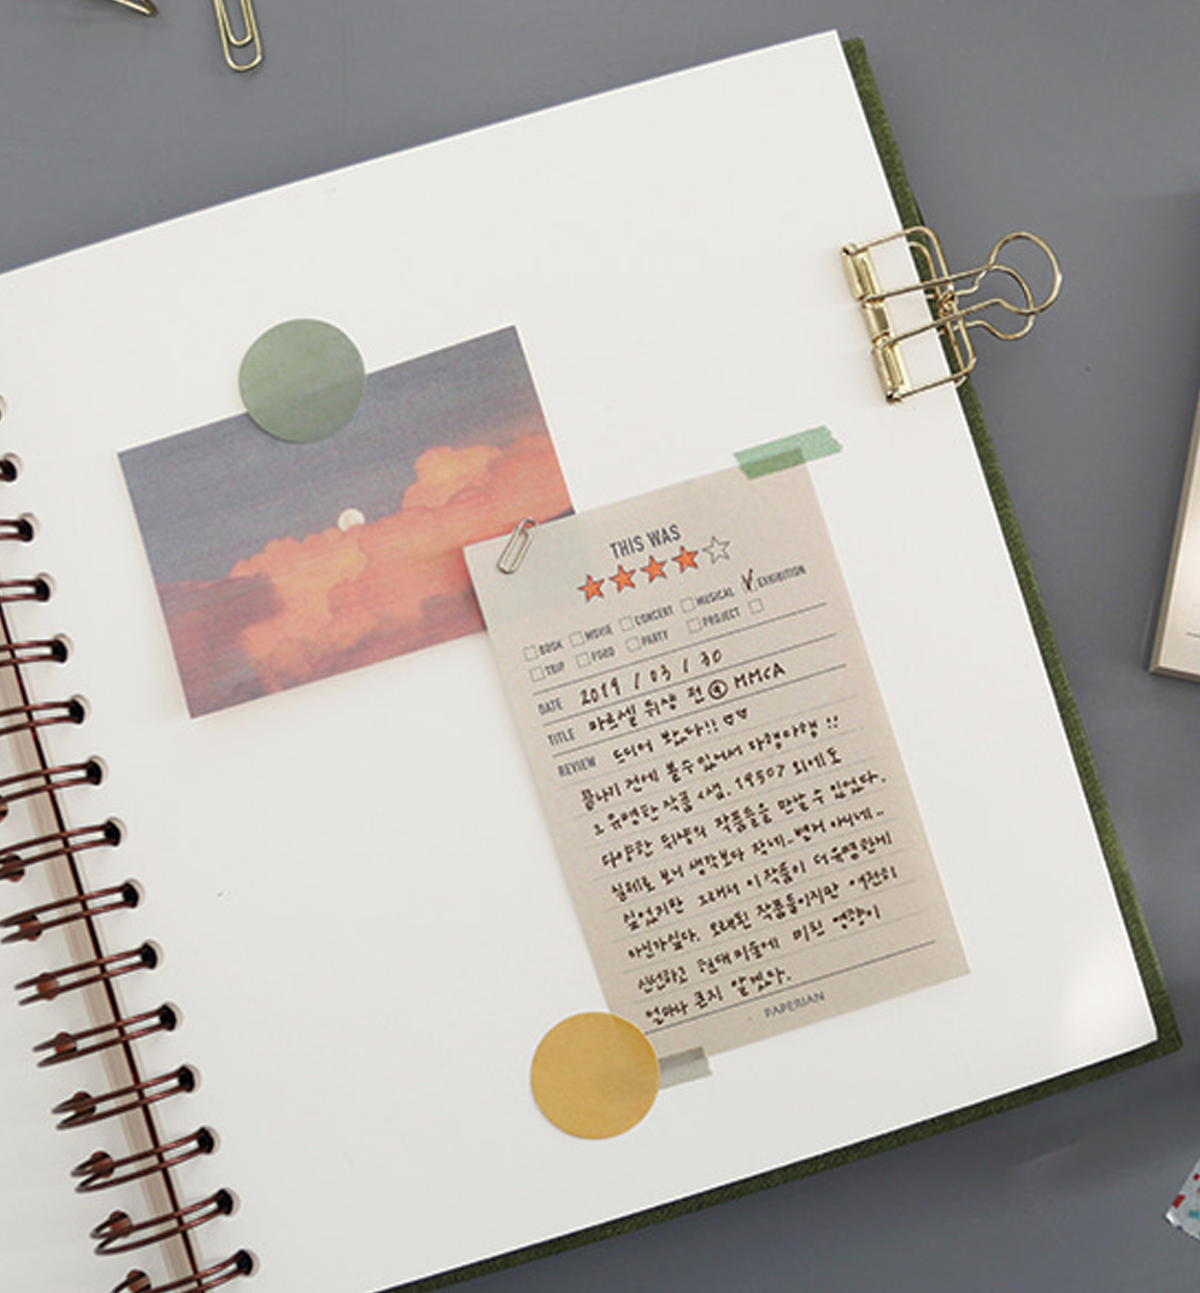 THIS WAS
BOOK MOVIE CONCERT MUSICAL EXHIBITION
TRIP FOOD PARTY PROJECT
DATE 2019 / 03 / 30
TITLE 마르셀 뒤샹 전 @ MMCA
REVIEW 드디어 봤다!!
끝나기 전에 볼수있어서 다행이야 !!
그 유명한 작품 <샘, 1950> 외에도
다양한 뒤샹의 작품들을 만날 수 있었다.
실제로 보니 생각보다 작네.. 변기 아니네..
싶었지만 그래서 이 작품이 더 유명한게
아닌가싶다. 오래된 작품들이지만 여전히
신선하고 현대미술에 미친 영향이
얼마나 큰지 알겠다.
PAPERIAN